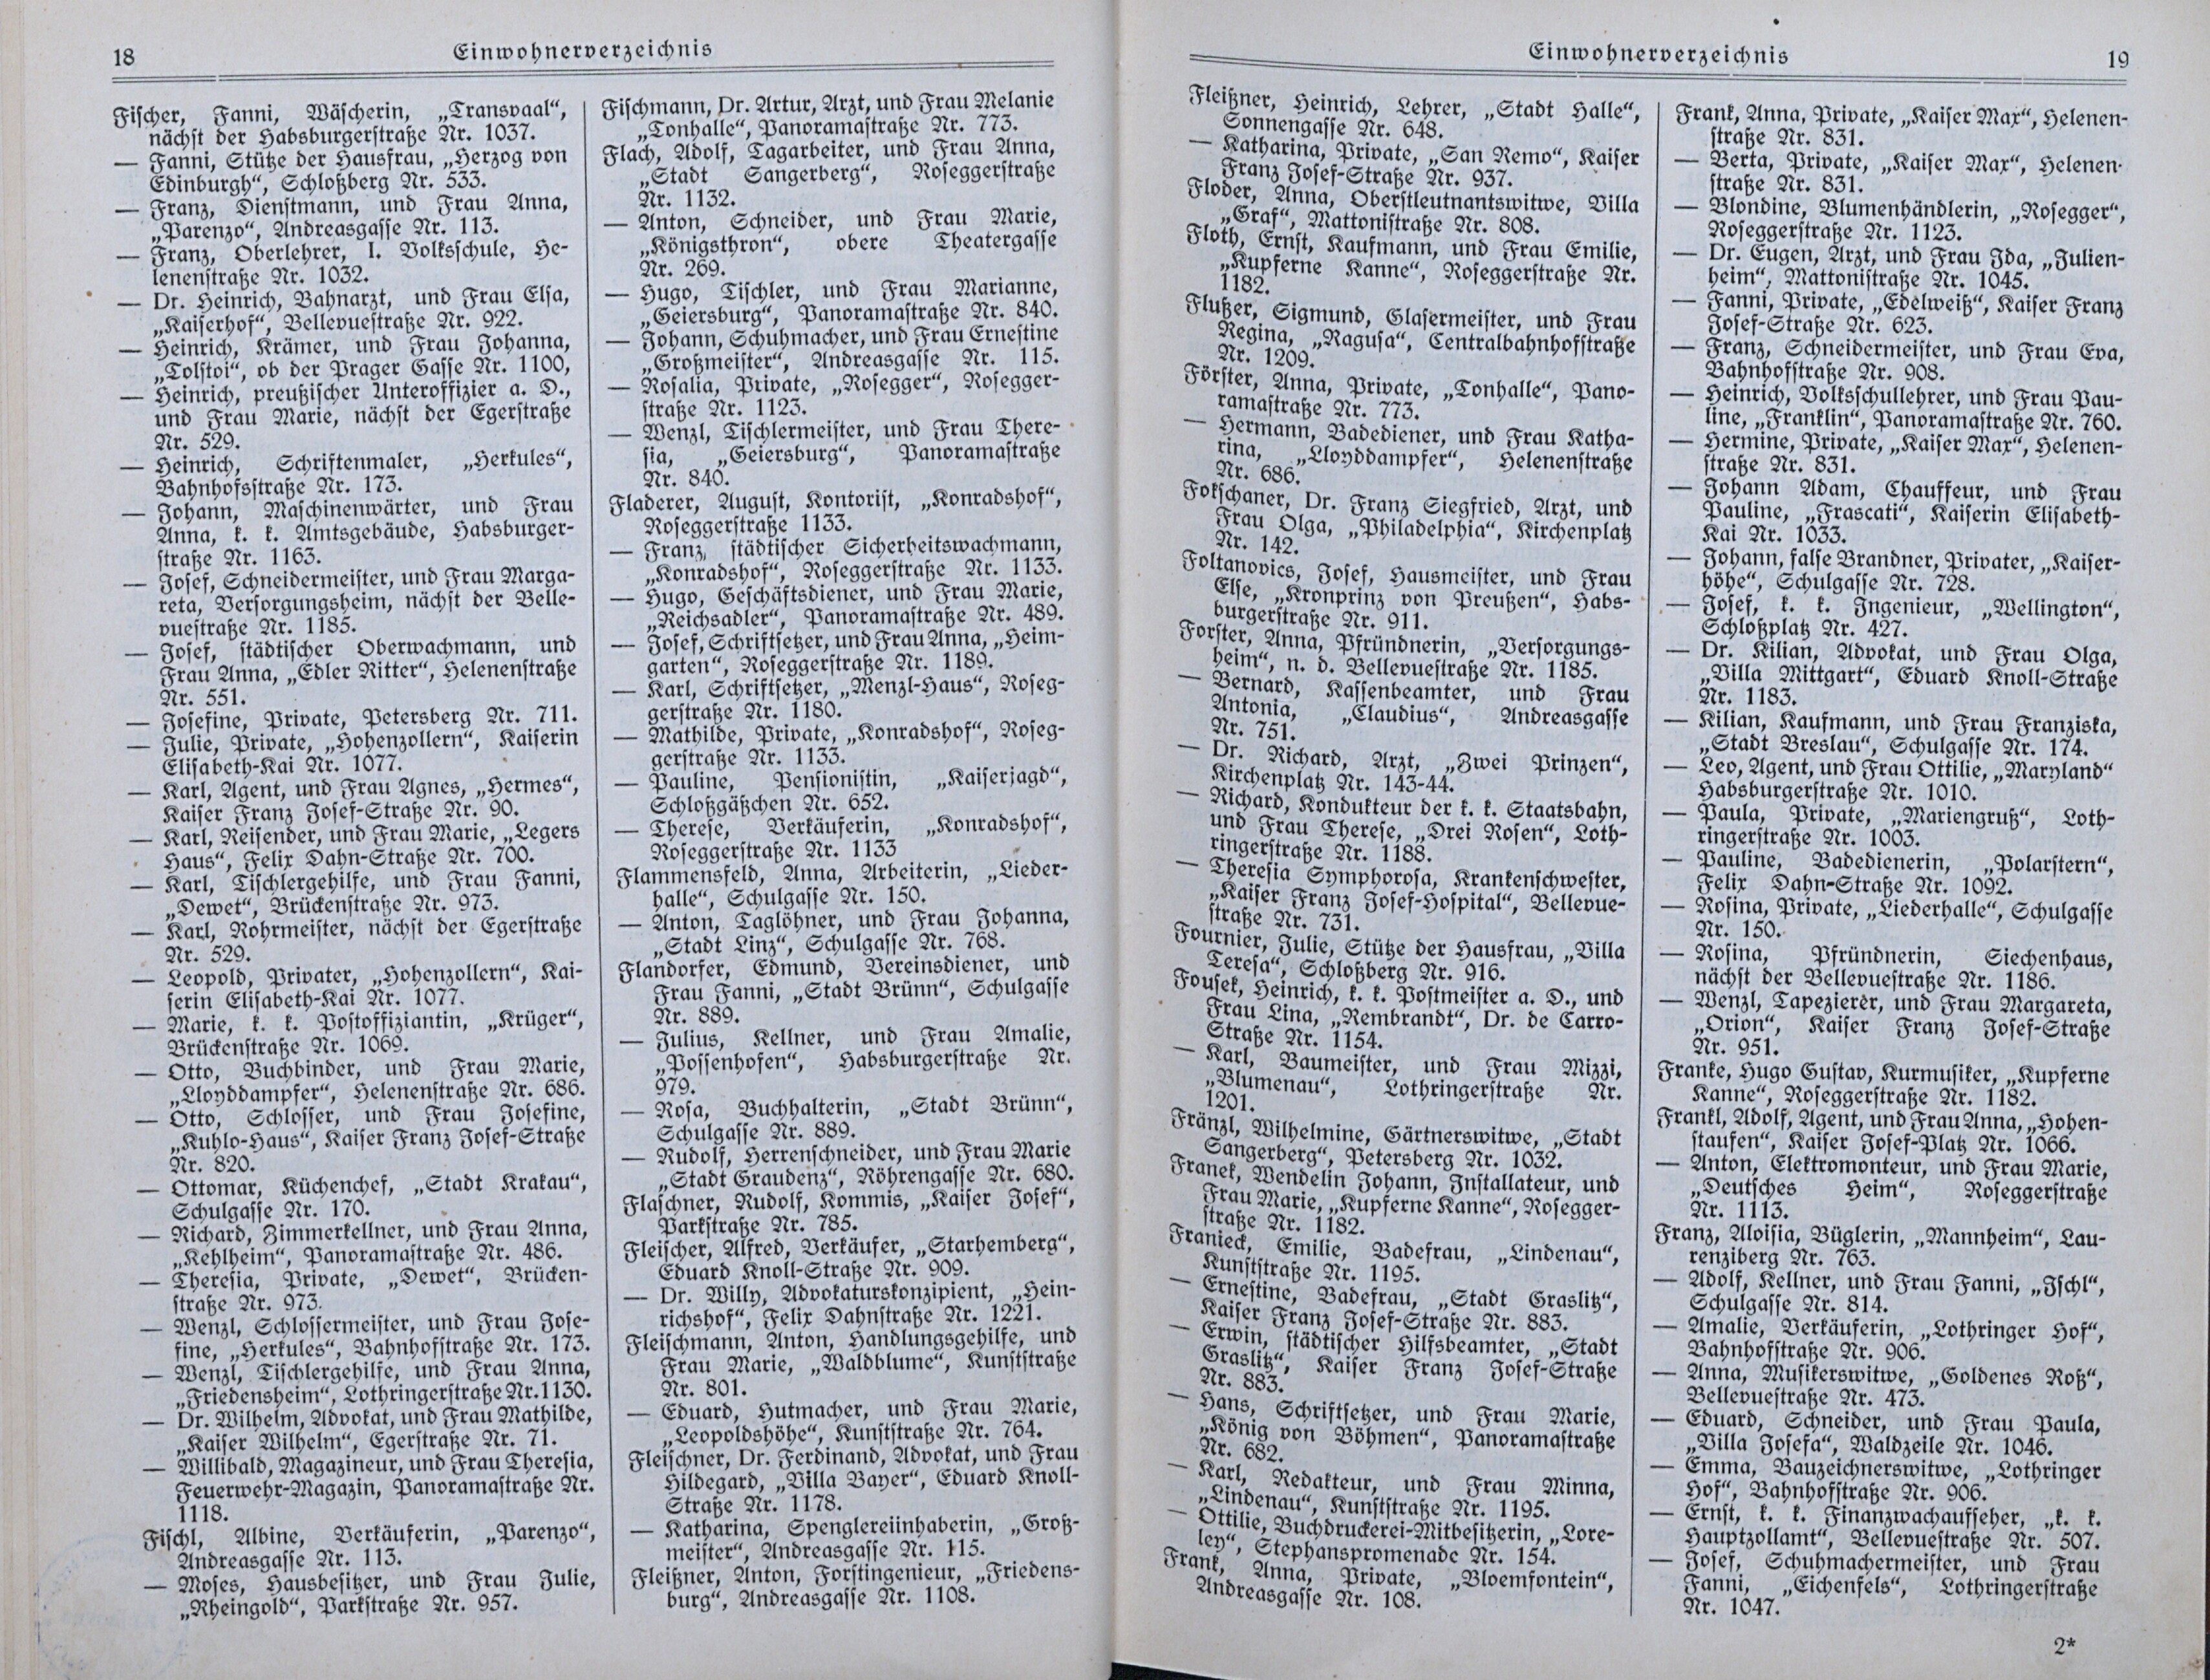 18
Einwohnerverzeichnis
Fischer, Fanni, Wäscherin, „Transvaal“,
nächst der Habsburgerstraße Nr. 1037.
— Fanni, Stütze der Hausfrau, „Herzog von
Edinburgh“, Schloßberg Nr. 533.
— Franz, Dienstmann, und Frau Anna,
„Parenzo“, Andreasgasse Nr. 113.
— Franz, Oberlehrer, I. Volksschule, He-
lenenstraße Nr. 1032.
— Dr. Heinrich, Bahnarzt, und Frau Elsa,
„Kaiserhof“, Bellevuestraße Nr. 922.
— Heinrich, Krämer, und Frau Johanna,
„Tolstoi“, ob der Prager Gasse Nr. 1100,
— Heinrich, preußischer Unteroffizier a. D.,
und Frau Marie, nächst der Egerstraße
Nr. 529.
— Heinrich, Schriftenmaler, „Herkules“,
Bahnhofsstraße Nr. 173.
— Johann, Maschinenwärter, und Frau
Anna, k. k. Amtsgebäude, Habsburger-
straße Nr. 1163.
— Josef, Schneidermeister, und Frau Marga-
reta, Versorgungsheim, nächst der Belle-
vuestraße Nr. 1185.
— Josef, städtischer Oberwachmann, und
Frau Anna, „Edler Ritter“, Helenenstraße
Nr. 551.
— Josefine, Private, Petersberg Nr. 711.
— Julie, Private, „Hohenzollern“, Kaiserin
Elisabeth-Kai Nr. 1077.
— Karl, Agent, und Frau Agnes, „Hermes“,
Kaiser Franz Josef-Straße Nr. 90.
— Karl, Reisender, und Frau Marie, „Legers
Haus“, Felix Dahn-Straße Nr. 700.
— Karl, Tischlergehilfe, und Frau Fanni,
„Dewet“, Brückenstraße Nr. 973.
— Karl, Rohrmeister, nächst der Egerstraße
Nr. 529.
— Leopold, Privater, „Hohenzollern“, Kai-
serin Elisabeth-Kai Nr. 1077.
— Marie, k. k. Postoffiziantin, „Krüger“,
Brückenstraße Nr. 1069.
— Otto, Buchbinder, und Frau Marie,
„Lloyddampfer“, Helenenstraße Nr. 686.
— Otto, Schlosser, und Frau Josefine,
„Kuhlo-Haus“, Kaiser Franz Josef-Straße
Nr. 820.
— Ottomar, Küchenchef, „Stadt Krakau“,
Schulgasse Nr. 170.
— Richard, Zimmerkellner, und Frau Anna,
„Kehlheim“, Panoramastraße Nr. 486.
— Theresia, Private, „Dewet“, Brücken-
straße Nr. 973.
— Wenzl, Schlossermeister, und Frau Jose-
fine, „Herkules“, Bahnhofstraße Nr. 173.
— Wenzl, Tischlergehilfe, und Frau Anna,
„Friedensheim“, Lothringerstraße Nr. 1130.
— Dr. Wilhelm, Advokat, und Frau Mathilde,
„Kaiser Wilhelm“, Egerstraße Nr. 71.
— Willibald, Magazineur, und Frau Theresia,
Feuerwehr-Magazin, Panoramastraße Nr.
1118.
Fischl, Albine, Verkäuferin, „Parenzo“,
Andreasgasse Nr. 113.
— Moses, Hausbesitzer, und Frau Julie,
„Rheingold“, Parkstraße Nr. 957.
Fischmann, Dr. Artur, Arzt, und Frau Melanie
„Tonhalle“, Panoramastraße Nr. 773.
Flach, Adolf, Tagarbeiter, und Frau Anna,
„Stadt Sangerberg“, Roseggerstraße
Nr. 1132.
— Anton, Schneider, und Frau Marie,
„Königsthron“, obere Theatergasse
Nr. 269.
— Hugo, Tischler, und Frau Marianne,
„Geiersburg“, Panoramastraße Nr. 840.
— Johann, Schuhmacher, und Frau Ernestine
„Großmeister“, Andreasgasse Nr. 115.
— Rosalia, Private, „Rosegger“, Rosegger-
straße Nr. 1123.
— Wenzl, Tischlermeister, und Frau There-
sia, „Geiersburg“, Panoramastraße
Nr. 840.
Fladerer, August, Kontorist, „Konradshof“,
Roseggerstraße 1133.
— Franz, städtischer Sicherheitswachmann,
„Konradshof“, Roseggerstraße Nr. 1133.
— Hugo, Geschäftsdiener, und Frau Marie,
„Reichsadler“, Panoramastraße Nr. 489.
— Josef, Schriftsetzer, und Frau Anna, „Heim-
garten“, Roseggerstraße Nr. 1189.
— Karl, Schriftsetzer, „Menzl-Haus“, Roseg-
gerstraße Nr. 1180.
— Mathilde, Private, „Konradshof“, Roseg-
gerstraße Nr. 1133.
— Pauline, Pensionistin, „Kaiserjagd“,
Schloßgäßchen Nr. 652.
— Therese, Verkäuferin, „Konradshof“,
Roseggerstraße Nr. 1133
Flammensfeld, Anna, Arbeiterin, „Lieder-
halle“, Schulgasse Nr. 150.
— Anton, Taglöhner, und Frau Johanna,
„Stadt Linz“, Schulgasse Nr. 768.
Flandorfer, Edmund, Vereinsdiener, und
Frau Fanni, „Stadt Brünn“, Schulgasse
Nr. 889.
— Julius, Kellner, und Frau Amalie,
„Possenhofen“, Habsburgerstraße Nr.
979.
— Rosa, Buchhalterin, „Stadt Brünn“,
Schulgasse Nr. 889.
— Rudolf, Herrenschneider, und Frau Marie
„Stadt Graudenz“, Röhrengasse Nr. 680.
Flaschner, Rudolf, Kommis, „Kaiser Josef“,
Parkstraße Nr. 785.
Fleischer, Alfred, Verkäufer, „Starhemberg“,
Eduard Knoll-Straße Nr. 909.
— Dr. Willy, Advokaturskonzipient, „Hein-
richshof“, Felix Dahnstraße Nr. 1221.
Fleischmann, Anton, Handlungsgehilfe, und
Frau Marie, „Waldblume“, Kunststraße
Nr. 801.
— Eduard, Hutmacher, und Frau Marie,
„Leopoldshöhe“, Kunststraße Nr. 764.
Fleischner, Dr. Ferdinand, Advokat, und Frau
Hildegard, „Villa Bayer“, Eduard Knoll-
Straße Nr. 1178.
— Katharina, Spenglereiinhaberin, „Groß-
meister“, Andreasgasse Nr. 115.
Fleißner, Anton, Forstingenieur, „Friedens-
burg“, Andreasgasse Nr. 1108.
Einwohnerverzeichnis
19
Fleißner, Heinrich, Lehrer, „Stadt Halle“,
Sonnengasse Nr. 648.
— Katharina, Private, „San Remo“, Kaiser
Franz Josef-Straße Nr. 937.
Floder, Anna, Oberstleutnantswitwe, Villa
„Graf“, Mattonistraße Nr. 808.
Floth, Ernst, Kaufmann, und Frau Emilie,
„Kupferne Kanne“, Roseggerstraße Nr.
1182.
Flußer, Sigmund, Glasermeister, und Frau
Regina, „Ragusa“, Centralbahnhofstraße
Nr. 1209.
Förster, Anna, Private, „Tonhalle“, Pano-
ramastraße Nr. 773.
— Hermann, Badediener, und Frau Katha-
rina, „Lloyddampfer“, Helenenstraße
Nr. 686.
Fokschaner, Dr. Franz Siegfried, Arzt, und
Frau Olga, „Philadelphia“, Kirchenplatz
Nr. 142.
Foltanovics, Josef, Hausmeister, und Frau
Else, „Kronprinz von Preußen“, Habs-
burgerstraße Nr. 911.
Forster, Anna, Pfründnerin, „Versorgungs-
heim“, n. d. Bellevuestraße Nr. 1185.
— Bernard, Kassenbeamter, und Frau
Antonia, „Claudius“, Andreasgasse
Nr. 751.
— Dr. Richard, Arzt, „Zwei Prinzen“,
Kirchenplatz Nr. 143-44.
— Richard, Kondukteur der k. k. Staatsbahn,
und Frau Therese, „Drei Rosen“, Loth-
ringerstraße Nr. 1188.
— Theresia Symphorosa, Krankenschwester,
„Kaiser Franz Josef-Hospital“, Bellevue-
straße Nr. 731.
Fournier, Julie, Stütze der Hausfrau, „Villa
Teresa“, Schloßberg Nr. 916.
Fousek, Heinrich, k. k. Postmeister a. D., und
Frau Lina, „Rembrandt“, Dr. de Carro-
Straße Nr. 1154.
— Karl, Baumeister, und Frau Mizzi,
„Blumenau“, Lothringerstraße Nr.
1201.
Fränzl, Wilhelmine, Gärtnerswitwe, „Stadt
Sangerberg“, Petersberg Nr. 1032.
Franek, Wendelin Johann, Installateur, und
Frau Marie, „Kupferne Kanne“, Rosegger-
straße Nr. 1182.
Franieck, Emilie, Badefrau, „Lindenau“,
Kunststraße Nr. 1195.
— Ernestine, Badefrau, „Stadt Graslitz“,
Kaiser Franz Josef-Straße Nr. 883.
— Erwin, städtischer Hilfsbeamter, „Stadt
Graslitz“, Kaiser Franz Josef-Straße
Nr. 883.
— Hans, Schriftsetzer, und Frau Marie,
„König von Böhmen“, Panoramastraße
Nr. 682.
— Karl, Redakteur, und Frau Minna,
„Lindenau“, Kunststraße Nr. 1195.
— Ottilie, Buchdruckerei-Mitbesitzerin, „Lore-
ley“, Stephanspromenade Nr. 154.
Frank, Anna, Private, „Bloemfontein“,
Andreasgasse Nr. 108.
Frank, Anna, Private, „Kaiser Max“, Helenen-
straße Nr. 831.
— Berta, Private, „Kaiser Max“, Helenen-
straße Nr. 831.
— Blondine, Blumenhändlerin, „Rosegger“,
Roseggerstraße Nr. 1123.
— Dr. Eugen, Arzt, und Frau Ida, „Julien-
heim“, Mattonistraße Nr. 1045.
— Fanni, Private, „Edelweiß“, Kaiser Franz
Josef-Straße Nr. 623.
— Franz, Schneidermeister, und Frau Eva,
Bahnhofstraße Nr. 908.
— Heinrich, Volksschullehrer, und Frau Pau-
line, „Franklin“, Panoramastraße Nr. 760.
— Hermine, Private, „Kaiser Max“, Helenen-
straße Nr. 831.
— Johann Adam, Chauffeur, und Frau
Pauline, „Frascati“, Kaiserin Elisabeth-
Kai Nr. 1033.
— Johann, false Brandner, Privater, „Kaiser-
höhe“, Schulgasse Nr. 728.
— Josef, k. k. Ingenieur, „Wellington“,
Schloßplatz Nr. 427.
— Dr. Kilian, Advokat, und Frau Olga,
„Villa Mittgart“, Eduard Knoll-Straße
Nr. 1183.
— Kilian, Kaufmann, und Frau Franziska,
„Stadt Breslau“, Schulgasse Nr. 174.
— Leo, Agent, und Frau Ottilie, „Maryland“
Habsburgerstraße Nr. 1010.
— Paula, Private, „Mariengruß“, Loth-
ringerstraße Nr. 1003.
— Pauline, Badedienerin, „Polarstern“,
Felix Dahn-Straße Nr. 1092.
— Rosina, Private, „Liederhalle“, Schulgasse
Nr. 150.
— Rosina, Pfründnerin, Siechenhaus,
nächst der Bellevuestraße Nr. 1186.
— Wenzl, Tapezierer, und Frau Margareta,
„Orion“, Kaiser Franz Josef-Straße
Nr. 951.
Franke, Hugo Gustav, Kurmusiker, „Kupferne
Kanne“, Roseggerstraße Nr. 1182.
Frankl, Adolf, Agent, und Frau Anna, „Hohen-
staufen“, Kaiser Josef-Platz Nr. 1066.
— Anton, Elektromonteur, und Frau Marie,
„Deutsches Heim“, Roseggerstraße
Nr. 1113.
Franz, Aloisia, Büglerin, „Mannheim“, Lau-
renziberg Nr. 763.
— Adolf, Kellner, und Frau Fanni, „Ischl“,
Schulgasse Nr. 814.
— Amalie, Verkäuferin, „Lothringer Hof“,
Bahnhofstraße Nr. 906.
— Anna, Musikerswitwe, „Goldenes Roß“,
Bellevuestraße Nr. 473.
— Eduard, Schneider, und Frau Paula,
„Villa Josefa“, Waldzeile Nr. 1046.
— Emma, Bauzeichnerswitwe, „Lothringer
Hof“, Bahnhofstraße Nr. 906.
— Ernst, k. k. Finanzwachaufseher, „k. k.
Hauptzollamt“, Bellevuestraße Nr. 507.
— Josef, Schuhmachermeister, und Frau
Fanni, „Eichenfels“, Lothringerstraße
Nr. 1047.
2*